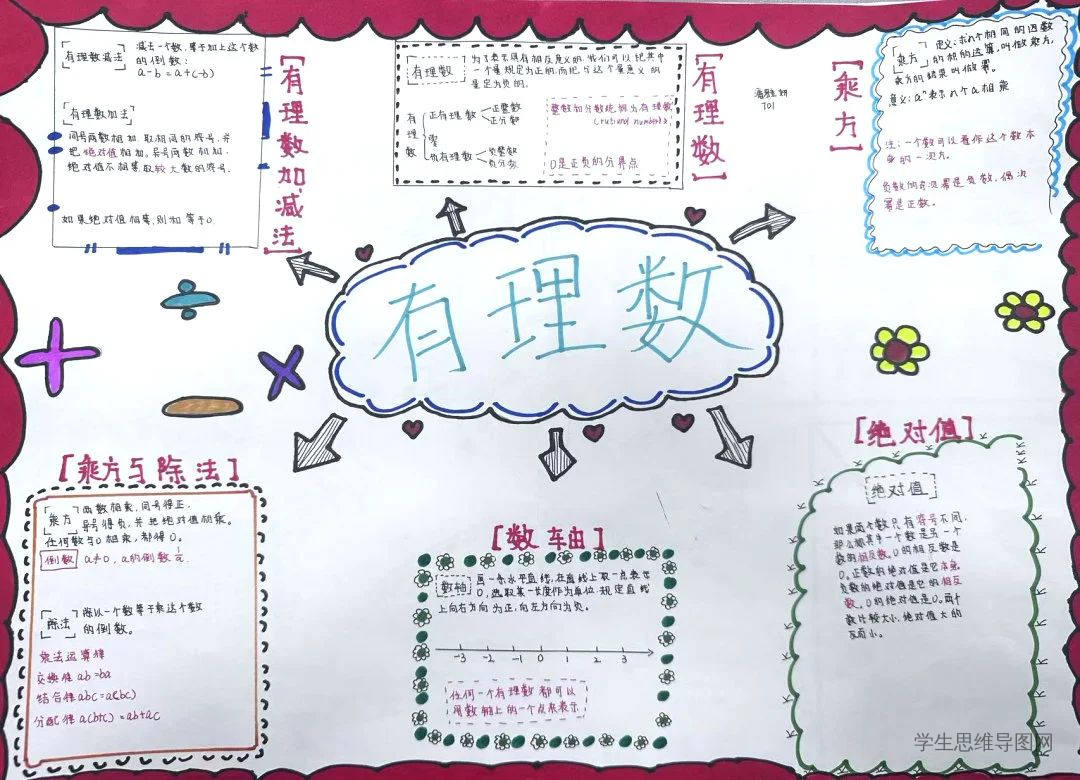 有理数
[有理数加减法]
有理数减法
减去一个数,等于加上这个数
的倒数:
a-b=a+(-b)
有理数加法
同号两数相加,取相同的符号,并
把绝对值相加。异号两数相加,
绝对值不相等,取较大数的符号.
如果绝对值相等,别和等于0
[有理数]
有理数
为了表示具有相反意义的.我们可以把其中
一个量规定为正的.而把与这个量意义的
量定为负的.
有理数
正有理数
正整数
正分数
零
负有理数
负整数
负分数
整数和分数统称为有理数
0是正负的分界点
701
[乘方]
乘方
定义:求n个相同的因数
的积的运算,叫做乘方,
乘方的结果叫做幂。
意义:aⁿ表示n个a相乘
注:一个数可以看作这个数本
身的一次方。
负数的奇次幂是负数,偶次
幂是正数。
[乘方与除法]
乘方
两数相乘,同号得正.
异号得负,并把绝对值相乘。
任何数与0相乘,都得0。
倒数
a≠0,a的倒数 1/a.
除法
除以一个数等于乘这个数
的倒数。
乘法运算律
交换律ab=ba
结合律abc=a(bc)
分配律a(b+c)=ab+ac
[数轴]
数轴
画一条水平直线,在直线上取一点表示
0,选取某一长度作为单位.规定直线
上向右方向为正,向左方向为负。
-3 -2 -1 0 1 2 3
任何一个有理数都可以
用数轴上的一个点来表示
[绝对值]
绝对值
如果两个数只有符号不同,
那么称其中一个数是另一个
数的相反数。0的相反数是
0。正数的绝对值是它本身
负数的绝对值是它的相反
数。0的绝对值是0。两个
数比较大小,绝对值大的
反而小。
学生思维导图网